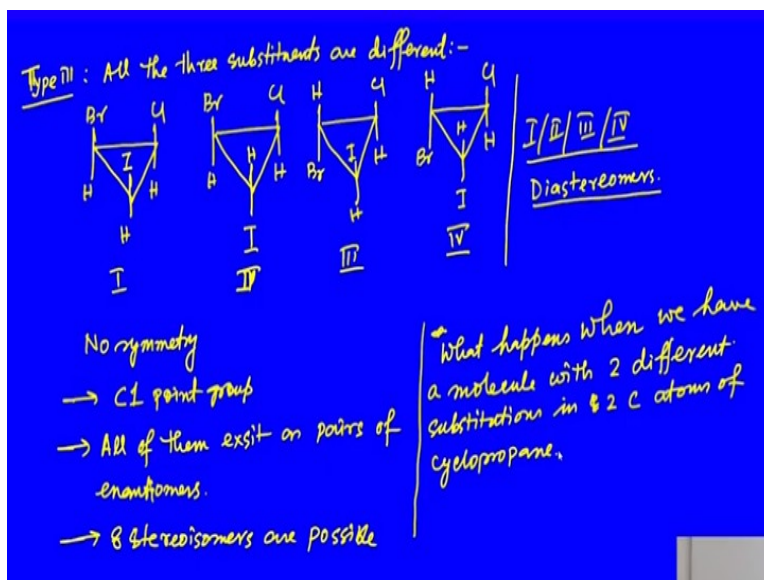 Type III : All the three substituents are different:-
Br Cl Br Cl H Cl H Cl
I H I H
H H H H Br H Br H
H I H I
I IV III IV
I/II/III/IV
Diastereomers.
No symmetry
→ C1 point group
→ All of them exsit as pairs of
enantiomers.
→ 8 stereoisomers are possible
What happens when we have
a molecule with 2 different
substitutions in 2 C atoms of
cyclopropane.